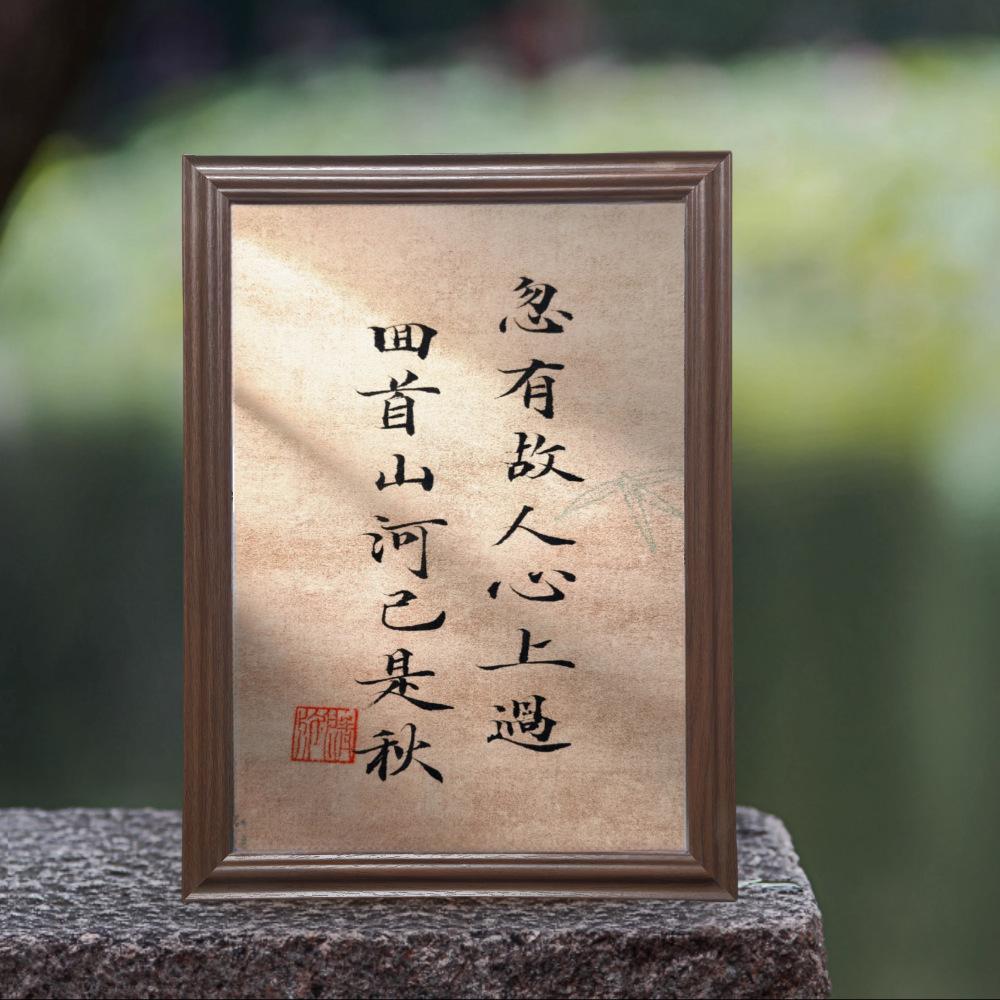 忽有故人心上過
囬首山河已是秋